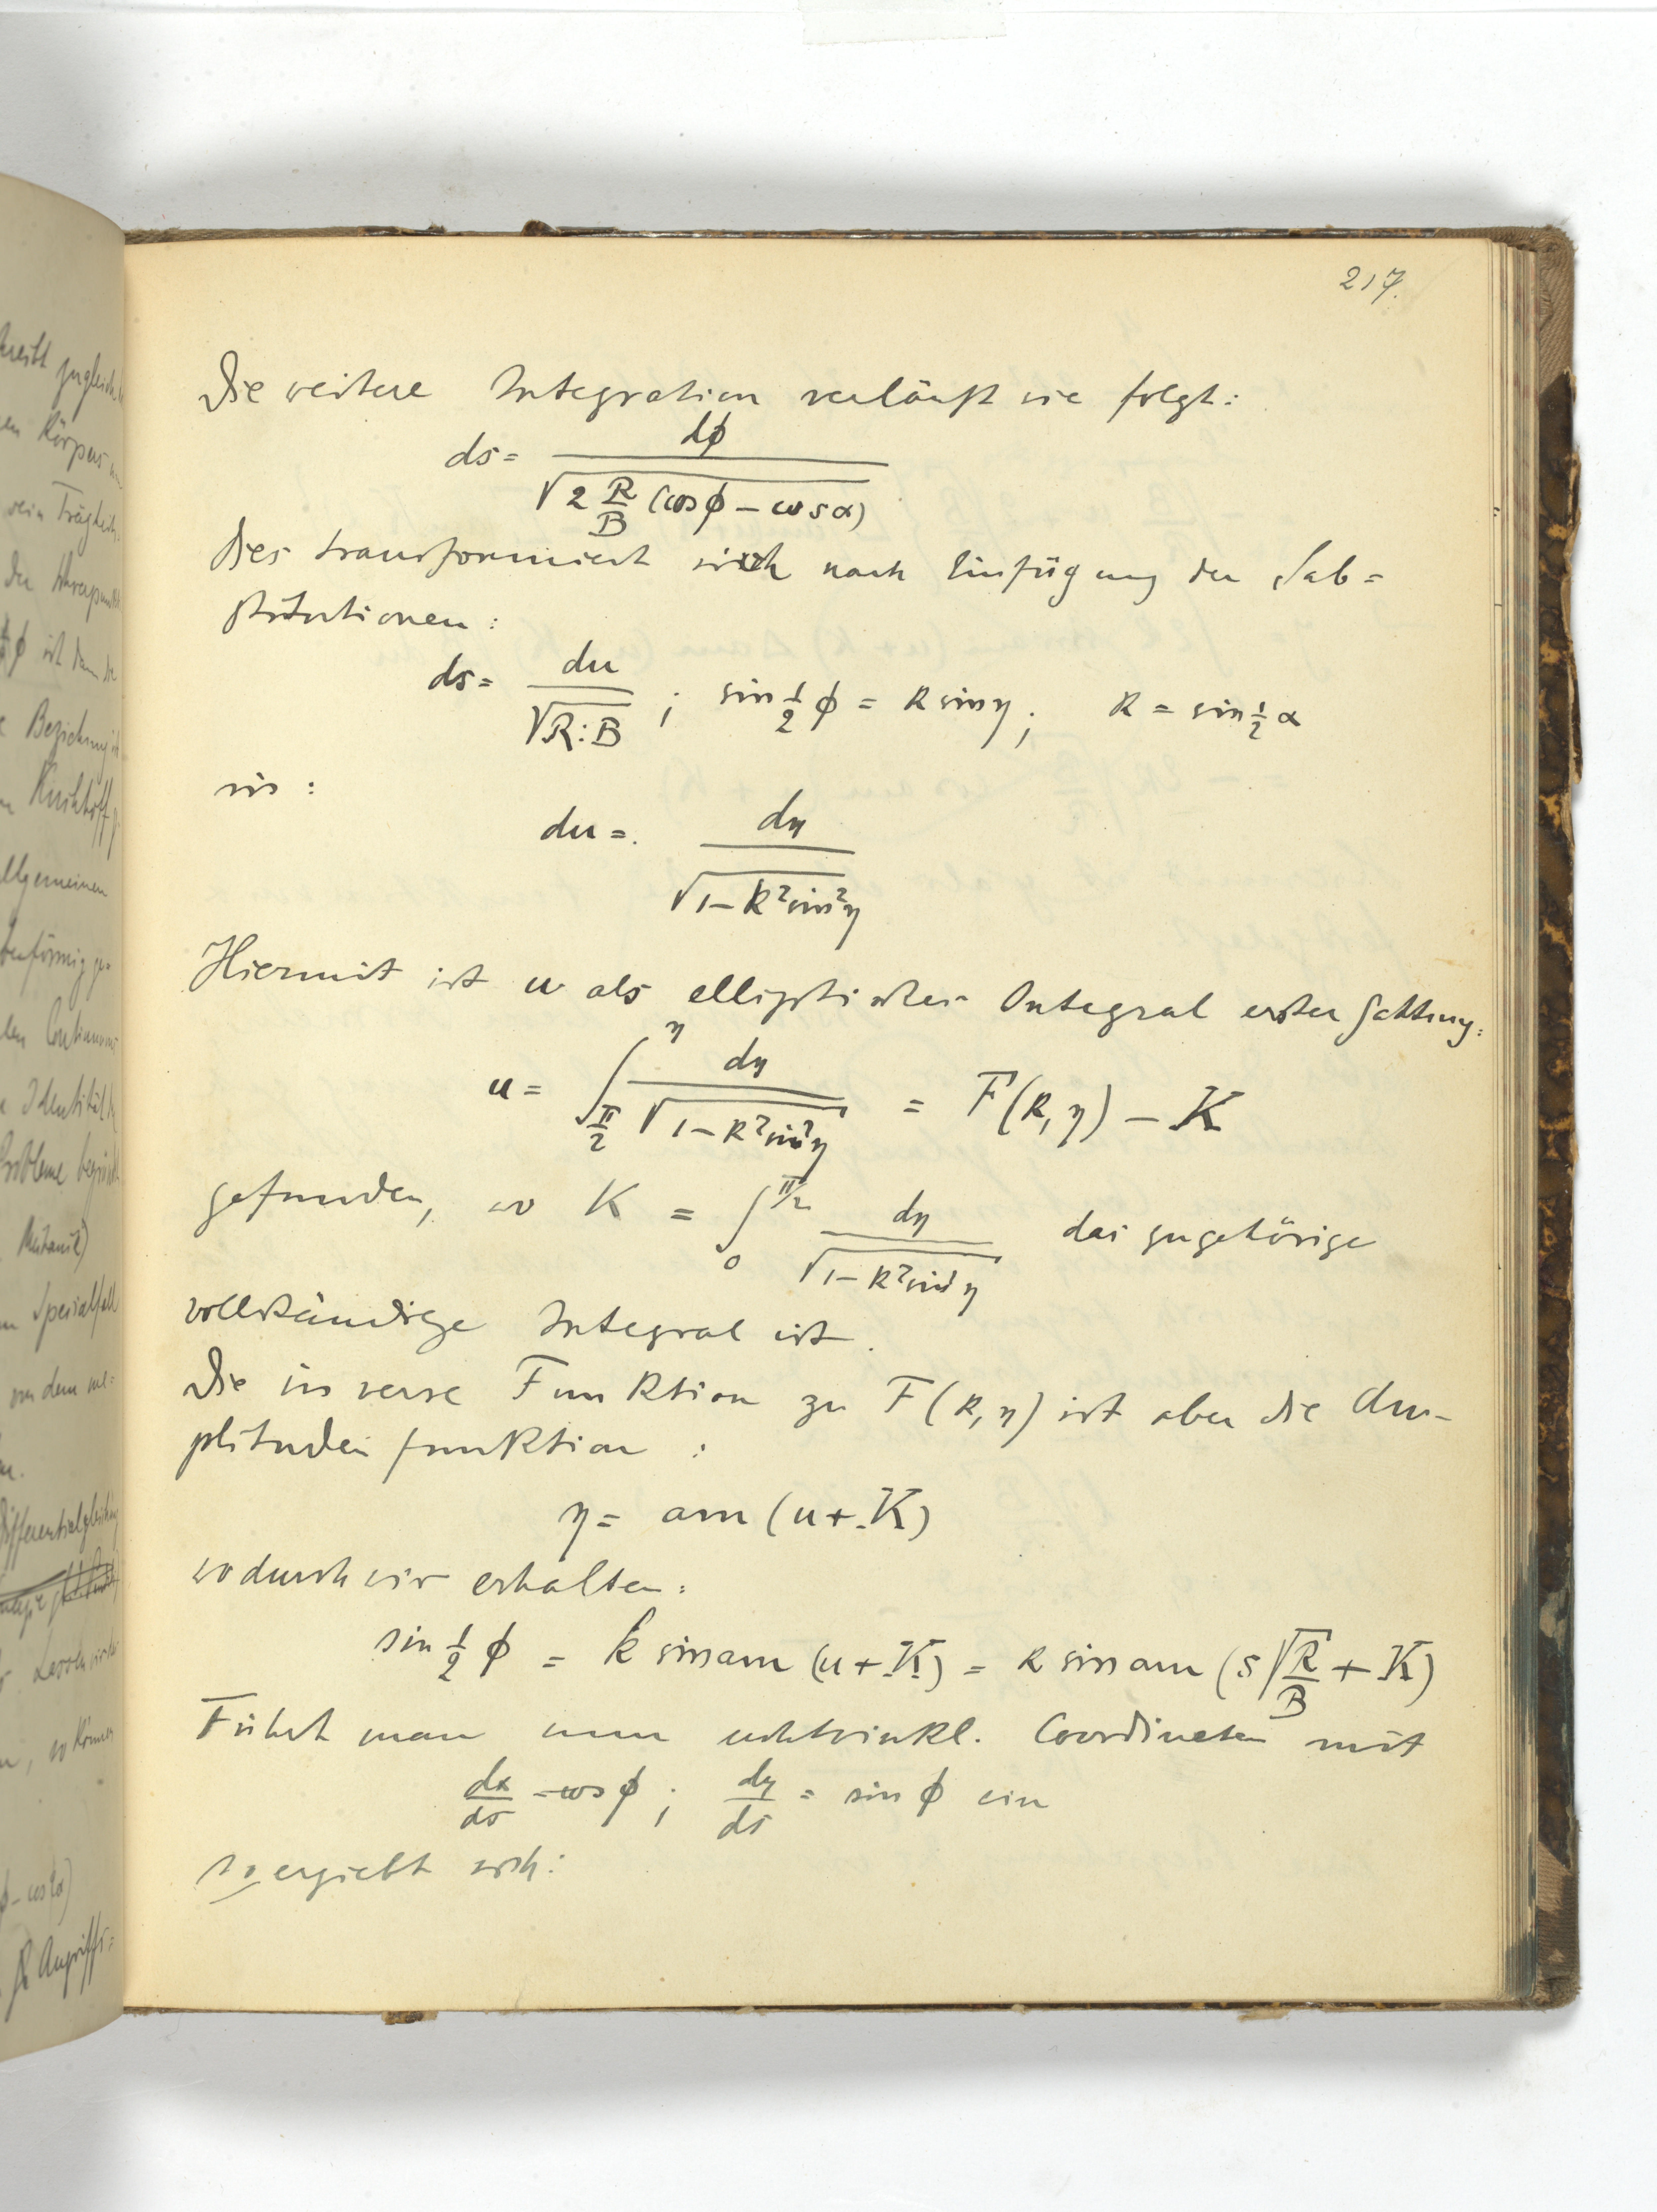 217.
Die weitere Integration verläuft wie folgt:
ds = dφ / √(2 R/B (cosφ – cosα))
Dies transformiert sich nach Einfügung der Sub=
stitutionen:
ds = du / √(R:B) ; sin ½ φ = k sin η ; k = sin ½ α
in:
du = dη / √(1–k² sin² η)
Hiermit ist u als elliptisches Integral erster Gattung:
u = ∫_{π/2}^{η} dη / √(1–k² sin² η) = F(k, η) – K
gefunden, wo K = ∫_0^{π/2} dη / √(1–k² sin² η) das zugehörige
vollständige Integral ist.
Die inverse Funktion zu F(k, η) ist aber die Am-
plitudenfunktion :
η = am (u+K)
wodurch wir erhalten:
sin ½ φ = k sin am (u+K) = k sin am (s √(R/B) + K)
Führt man nun rechtwinkl. Coordinaten mit
dx/ds = cos φ ; dy/ds = sin φ ein
so ergiebt sich: